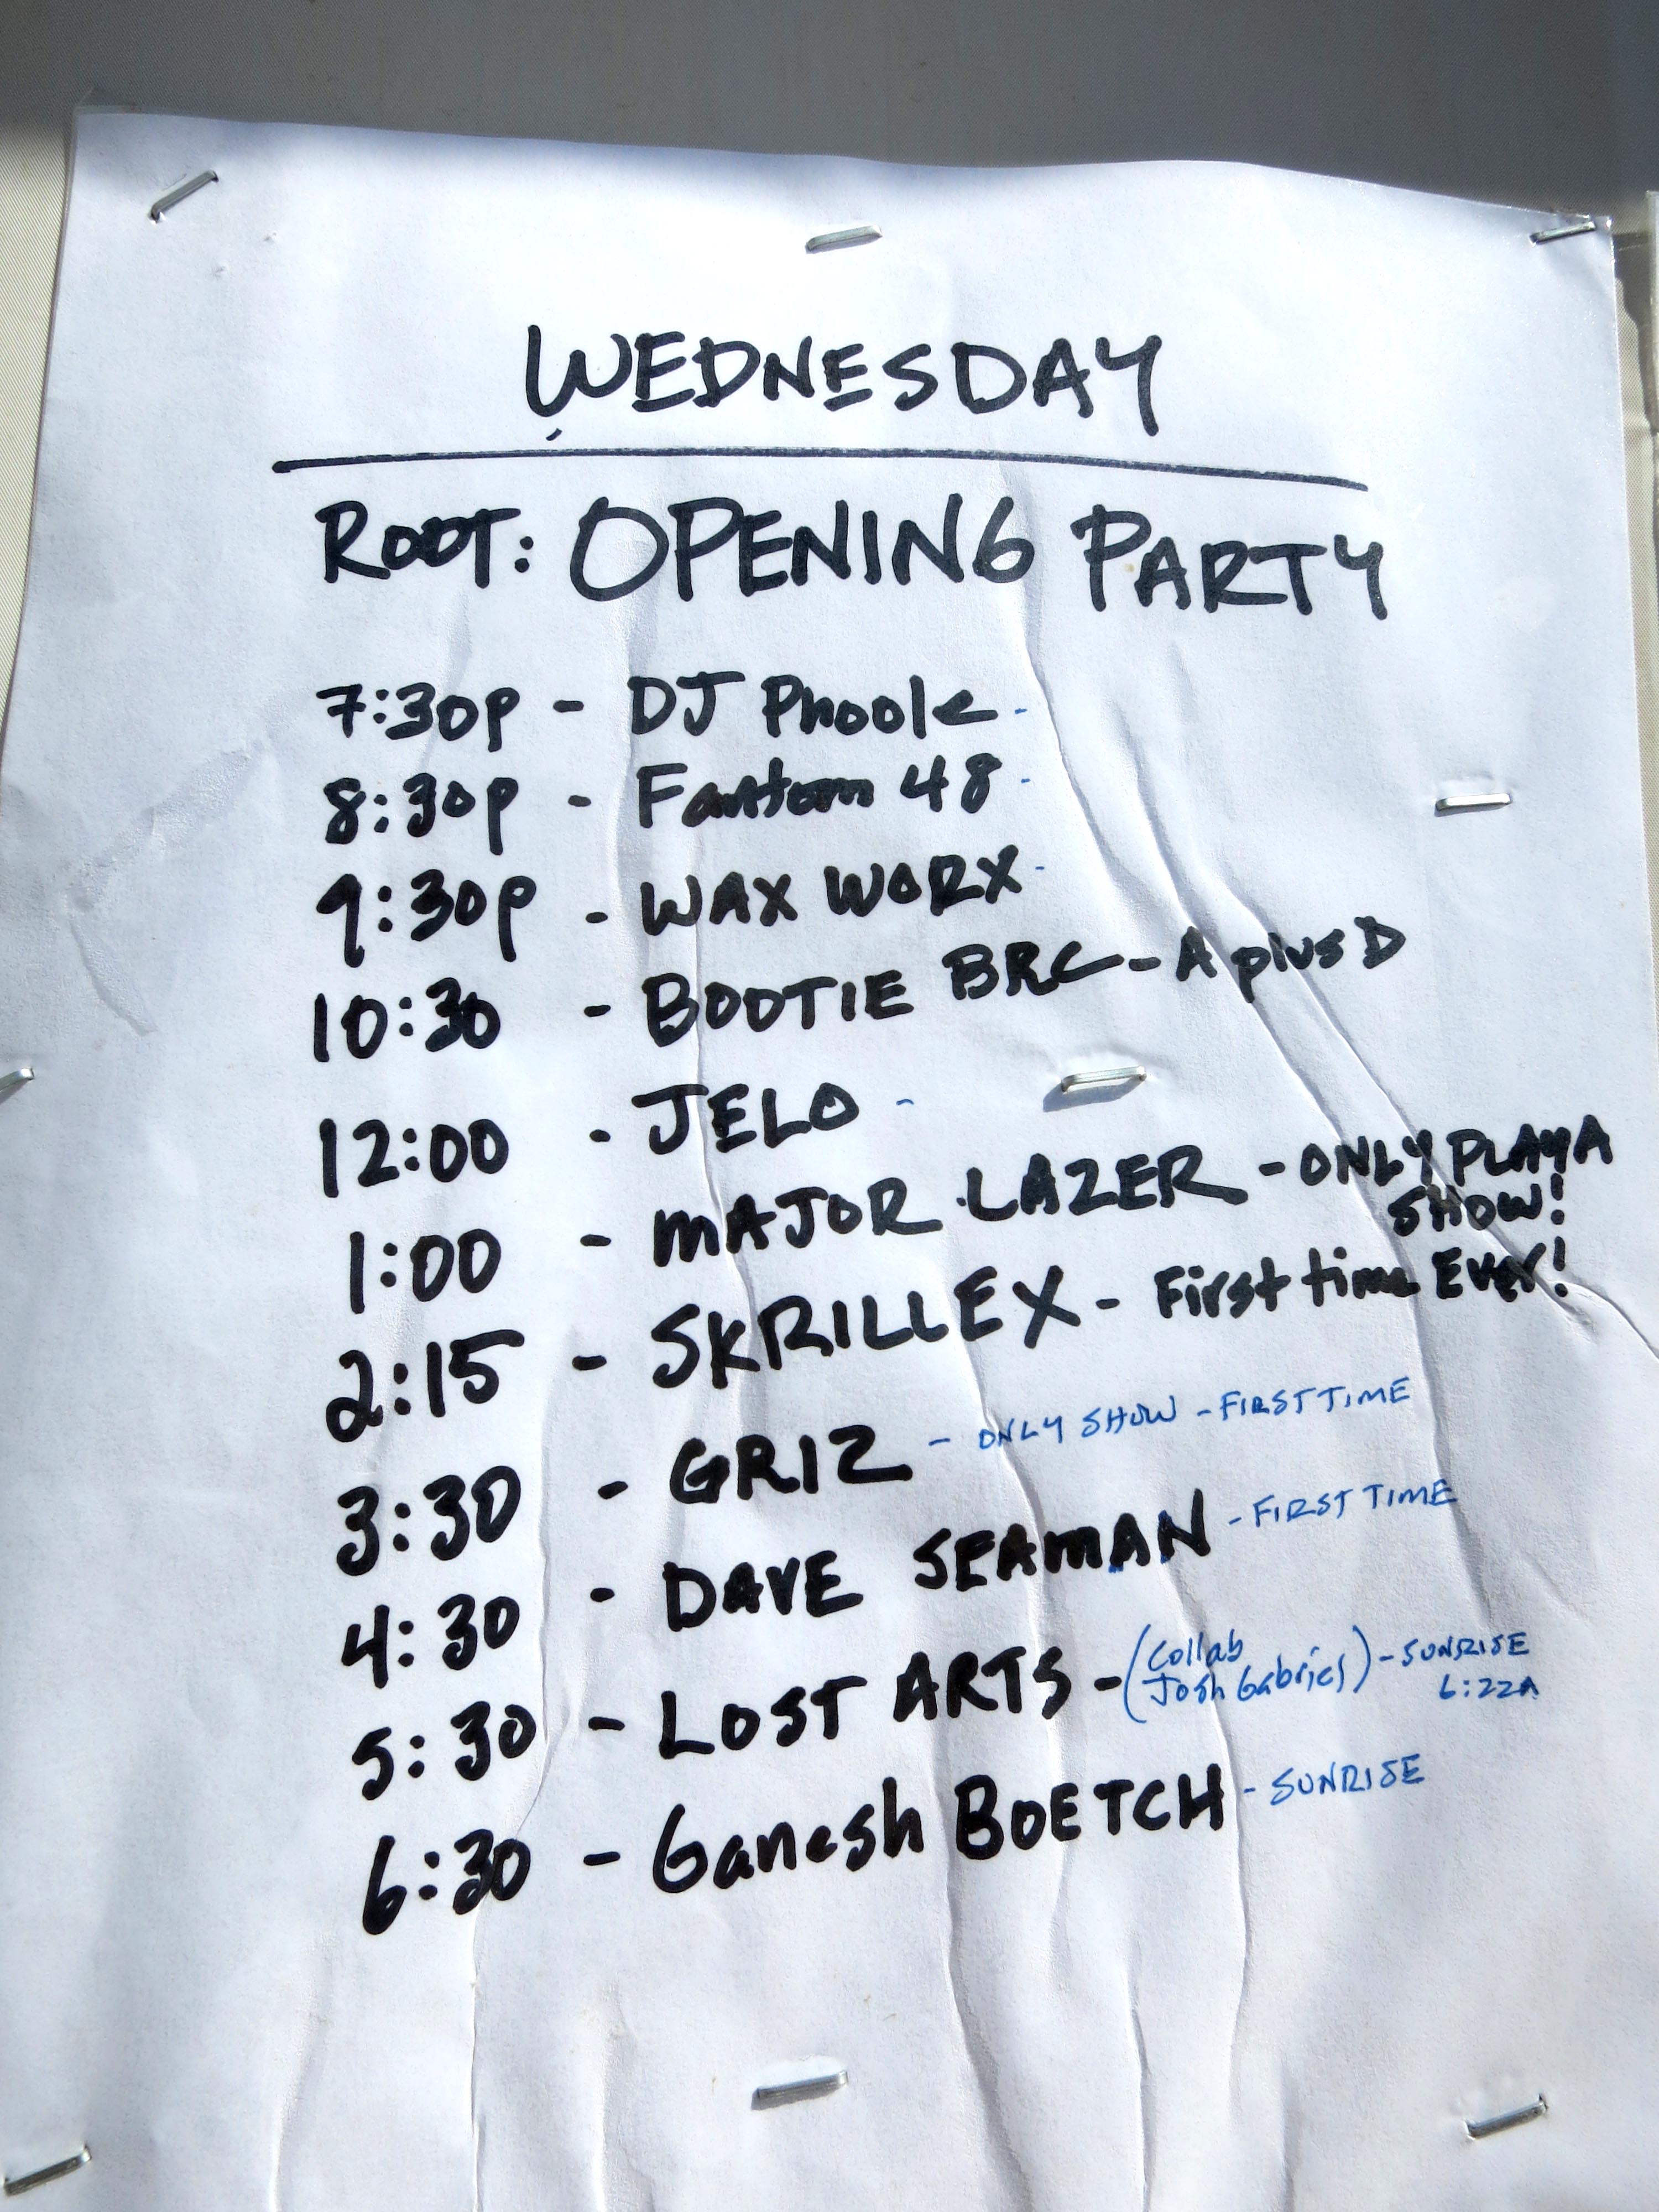 WEDNESDAY
ROOT: OPENING PARTY
7:30p - DJ Phoole -
8:30p - Fantom 48 -
9:30p - WAX WORX -
10:30 - BOOTIE BRC - A plus D
12:00 - JELO -
1:00 - MAJOR LAZER - ONLY PLAYA
SHOW!
2:15 - SKRILLEX - First time Ever!
3:30 - GRIZ - ONLY SHOW - FIRST TIME
4:30 - DAVE SEAMAN - FIRST TIME
5:30 - LOST ARTS - (Collab
Josh Gabriel) - SUNRISE
6:22A
6:30 - Ganesh BOETCH - SUNRISE